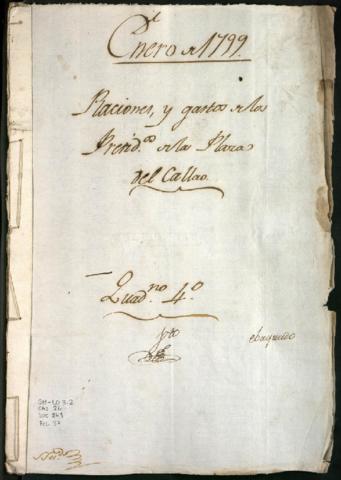 Enero de 1799.
Raciones, y gastos de los
Presid.os de la Plaza
del Callao.
Quad.no 4.o
chequeado
CAJ 26
DOC 241
FOL 37